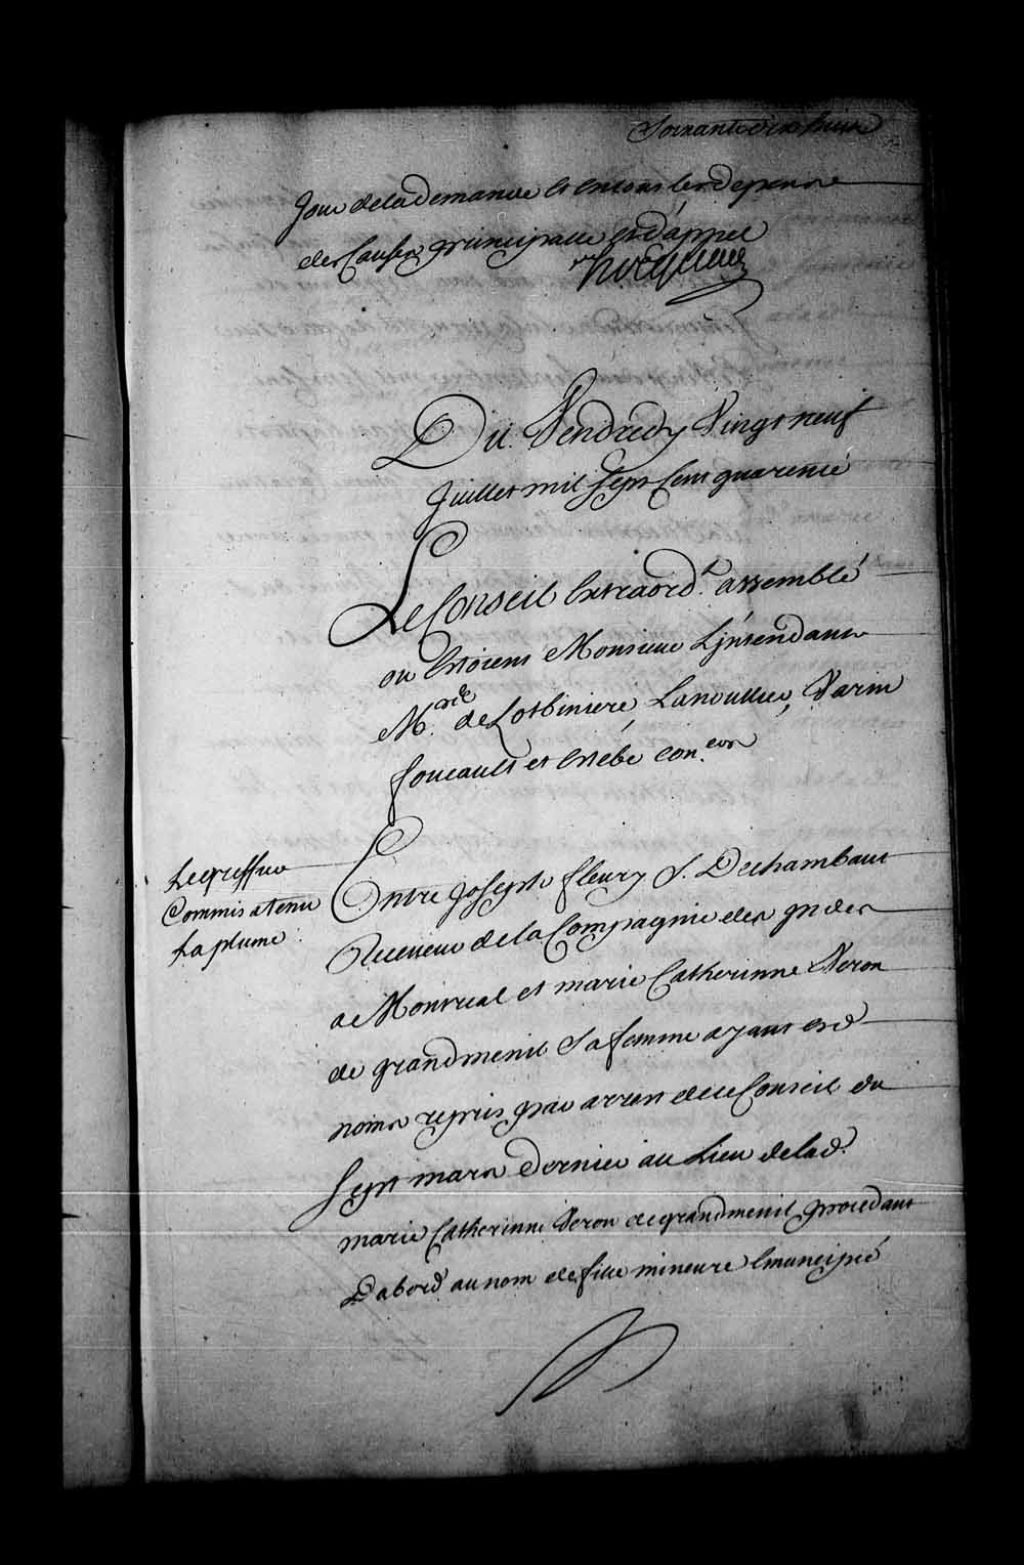 Soixante dix huit
Jour de la Demande et en tous les depens
des Causes principalle et d'appel
hocquart
Du Vendredy Vingt neuf
Juillet mil Sept Cent quarente
Le Conseil Extraord.t assemblé
ou Estoient Monsieur L'jntendant
M.rs de Lotbiniere, Lanoullier, Varin
foucault et Estébe con.ers
Le greffier
Commis a tenu
La plume
Entre Joseph fleury S. Dechambaut
Receveur de la Compagnie des jndes
a Montreal et marie Catherinne Veron
de grandmenil Sa femme ayant esd.
noms repris par arrest de ce Conseil du
Sept mars Dernier au Lieu de lad.
marie Catherinne Veron de grandmenil procedant
Dabord au nom de fille mineure Emancipée